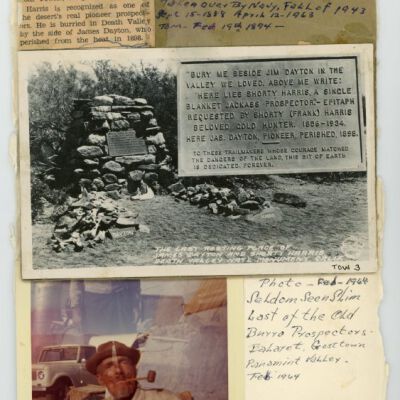 Harris is recognized as one of
the desert's real pioneer prospec-
tors. He is burried in Death Valley
by the side of James Dayton, who
perished from the heat in 1898.
Taken Over By Navy, Fall of 1943
15-1888 April 12-1963
Tom Feb 19th 1894 —
"BURY ME BESIDE JIM DAYTON IN THE
VALLEY WE LOVED. ABOVE ME WRITE:
'HERE LIES SHORTY HARRIS, A SINGLE
BLANKET JACKASS PROSPECTOR'." - EPITAPH
REQUESTED BY SHORTY (FRANK) HARRIS
BELOVED GOLD HUNTER. 1856-1934.
HERE JAS. DAYTON, PIONEER, PERISHED, 1898.
TO THESE TRAILMAKERS WHOSE COURAGE MATCHED
THE DANGERS OF THE LAND, THIS BIT OF EARTH
IS DEDICATED FOREVER.
THE LAST RESTING PLACE OF
JAMES DAYTON AND SHORTY HARRIS
DEATH VALLEY NAT'L MONUMENT
TOW 3
Photo - Feb - 1964
Seldom Seen Slim
Last of the Old
Burro Prospectors.
Ballarat, Ghosttown
Panamint Valley.
Feb 1964